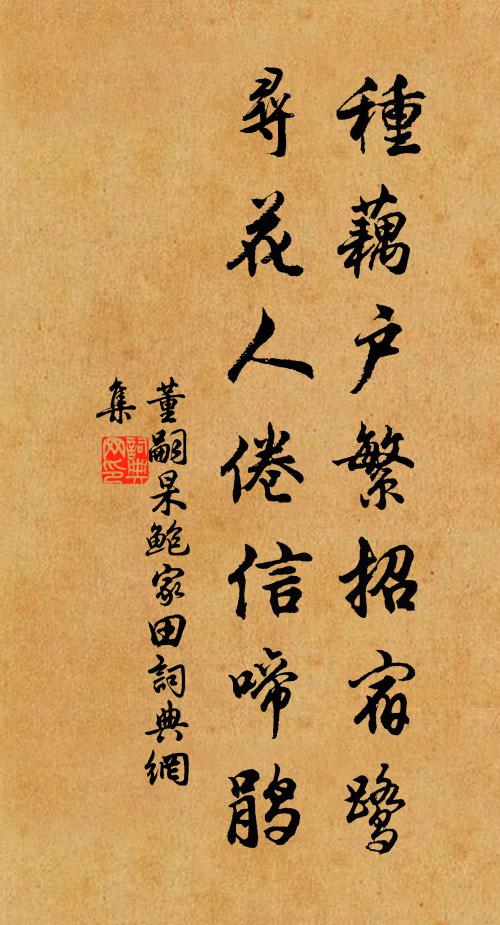 種藕户繁招宿鷺
尋花人倦信啼鵑
董嗣杲鮑家田詞典網
集
詞典網印